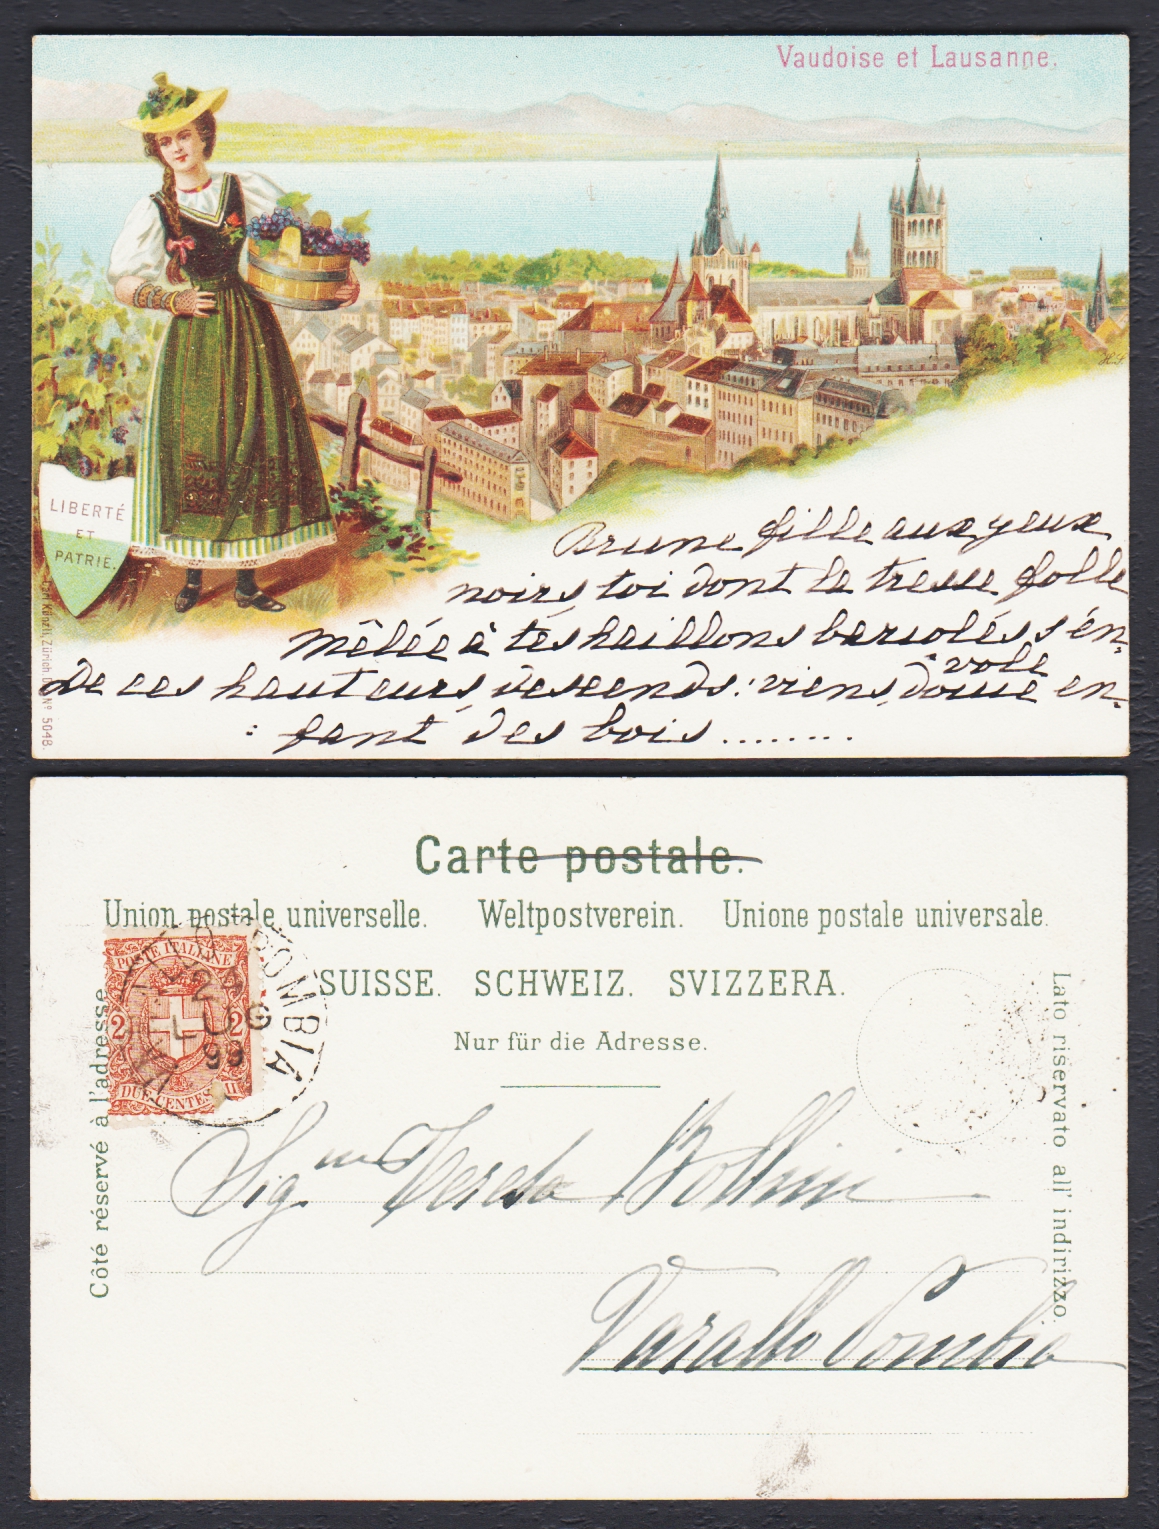 Vaudoise et Lausanne.
LIBERTÉ
ET
PATRIE.
Carl Künzli, Zürich Dép. No 5048.
Brune fille aux yeux
noirs toi dont la tresse folle
mêlée à tes haillons bariolés s'én-
vole
De ces hauteurs descends! viens, douce en-
fant des bois........
Carte postale.
Union postale universelle. Weltpostverein. Unione postale universale.
SUISSE. SCHWEIZ. SVIZZERA.
Nur für die Adresse.
Côté réservé à l'adresse.
Lato riservato all' indirizzo.
POSTE ITALIANE
2 2
DUE CENTES. II
POMBIA
24
LUG
99
Sig.na Teresa Bollini
Varallo Pombia